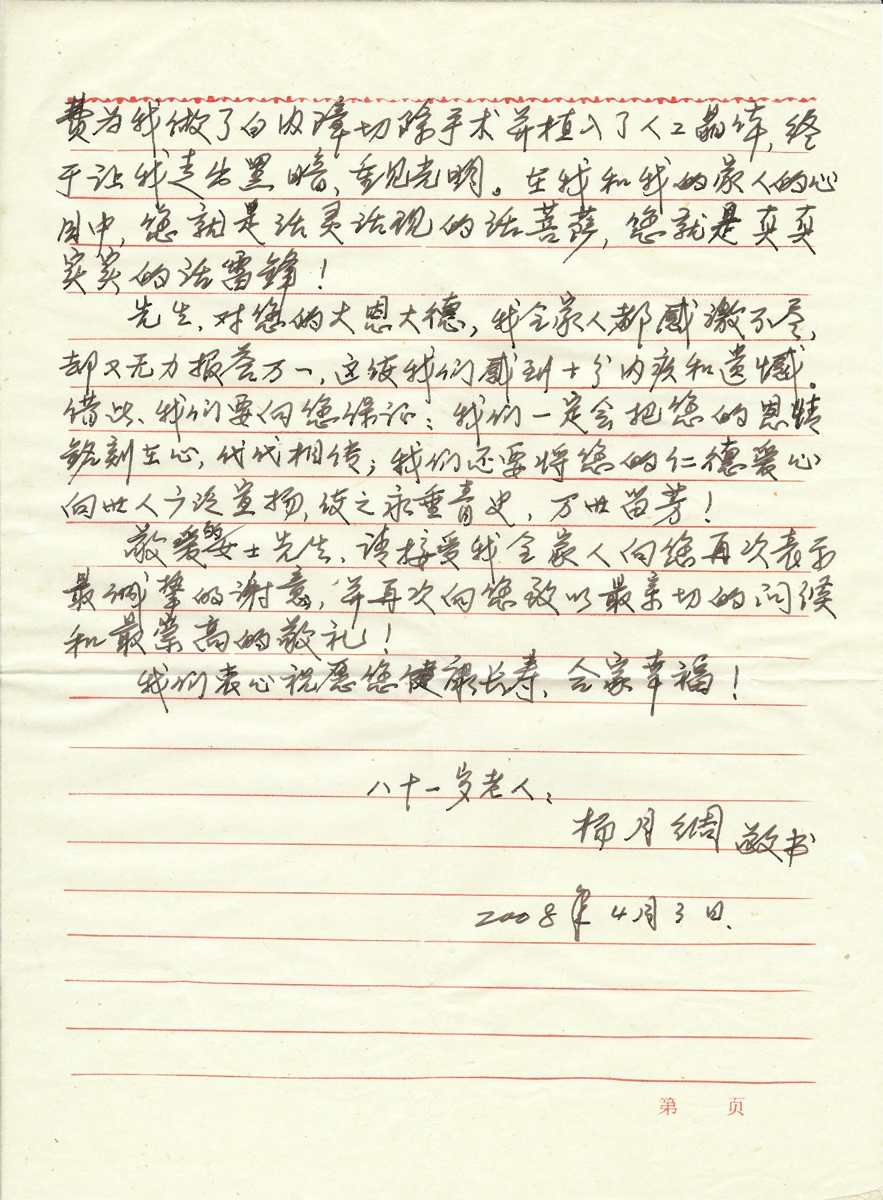 费为我做了白内障切除手术并植入了人工晶体,终
于让我走出黑暗、重见光明。在我和我的家人的心
目中,您就是活灵活现的活菩萨,您就是真真
实实的活雷锋!
先生,对您的大恩大德,我全家人都感激不尽,
却又无力报答万一,这使我们感到十分内疚和遗憾。
借此、我们要向您保证:我们一定会把您的恩情
铭刻在心,代代相传;我们还要将您的仁德爱心
向世人广泛宣扬,使之永垂青史,万世留芳!
敬爱的 士先生、请接受我全家人向您再次表示
最诚挚的谢意,并再次向您致以最亲切的问候
和最崇高的敬礼!
我们衷心祝愿您健康长寿、合家幸福!
八十一岁老人:
杨月绸 敬书
2008年4月3日.
第 页